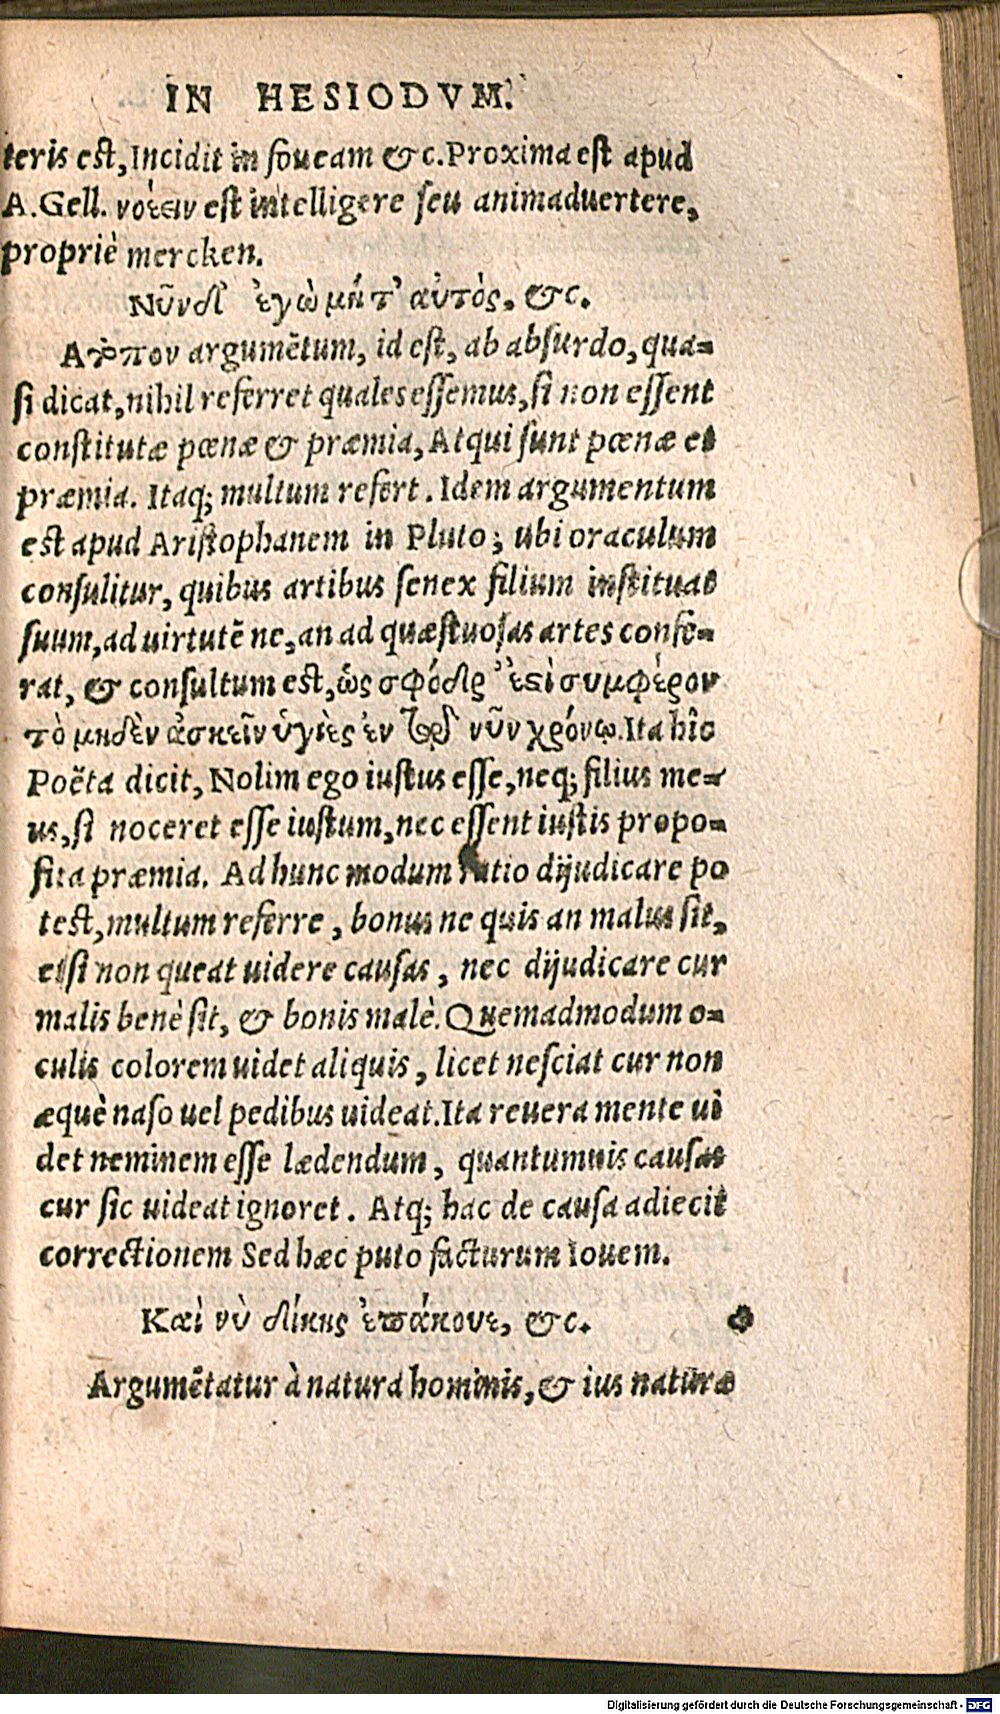 IN HESIODVM.
teris est, Incidit in foueam &c. Proxima est apud
A. Gell. νοέειν est intelligere seu animaduertere,
propriè mercken.
Νῦν δὴ ἐγὼ μήτ' αὐτὸς, &c.
Ατοπον argumẽtum, id est, ab absurdo, qua-
si dicat, nihil referret quales essemus, si non essent
constitutæ pœnæ & præmia, Atqui sunt pœnæ et
præmia. Itaq; multum refert. Idem argumentum
est apud Aristophanem in Pluto; ubi oraculum
consulitur, quibus artibus senex filium instituat
suum, ad uirtutẽ ne, an ad quæstuosas artes confe-
rat, & consultum est, ὡς σφόδρ' ἐστὶ συμφέρον
τὸ μηδὲν ἀσκεῖν ὑγιὲς ἐν τῷ νῦν χρόνῳ. Ita hîc
Poëta dicit, Nolim ego iustus esse, neq; filius me-
us, si noceret esse iustum, nec essent iustis propo-
sita præmia. Ad hunc modum ratio dijudicare po
test, multum referre, bonus ne quis an malus sit,
etsi non queat uidere causas, nec dijudicare cur
malis benè sit, & bonis malè. Quemadmodum o-
culis colorem uidet aliquis, licet nesciat cur non
æquè naso uel pedibus uideat. Ita reuera mente ui
det neminem esse lædendum, quantumuis causas
cur sic uideat ignoret. Atq; hac de causa adiecit
correctionem Sed hæc puto facturum Iouem.
Καὶ νὺ δίκης ἐπάκουε, &c.
Argumẽtatur à natura hominis, & ius naturæ
Digitalisierung gefördert durch die Deutsche Forschungsgemeinschaft - DFG